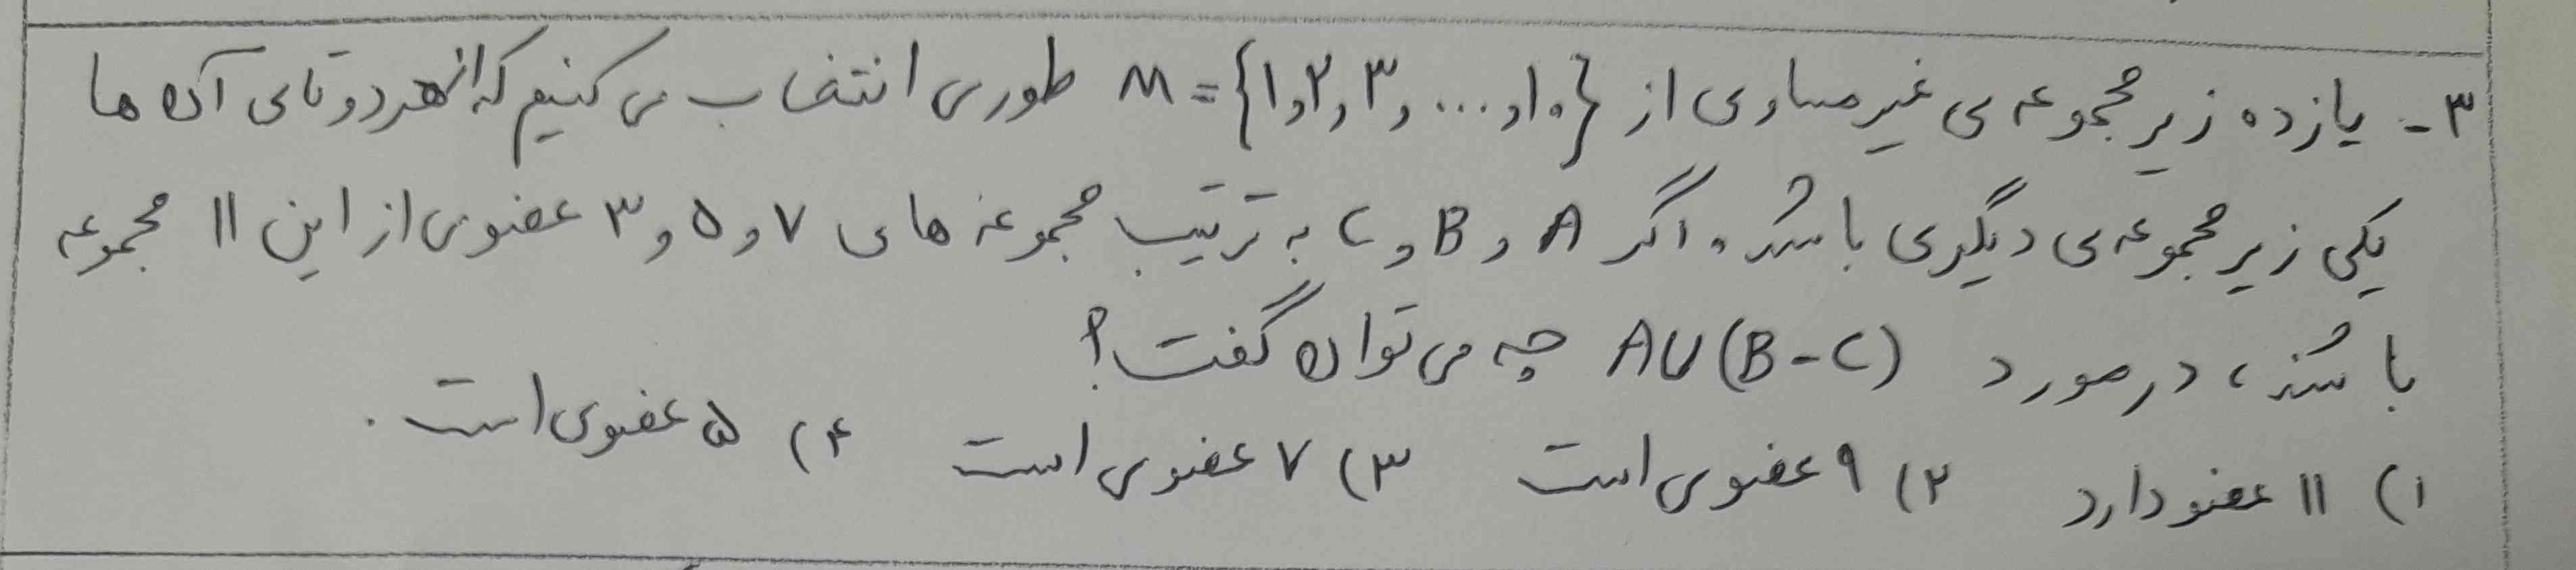 ۳- یازده زیر مجموعه ی غیر مساوی از M = {۱,۲,۳,...,۱۰} طوری انتخاب می کنیم که از هر دو تای آن ها
یکی زیر مجموعه ی دیگری باشد. اگر A و B و C به ترتیب مجموعه های ۷ و ۵ و ۳ عضوی از این ۱۱ مجموعه
باشند، در مورد A∪(B-C) چه می توان گفت؟
۱) ۱۱ عضو دارد ۲) ۹ عضوی است ۳) ۷ عضوی است ۴) ۵ عضوی است.